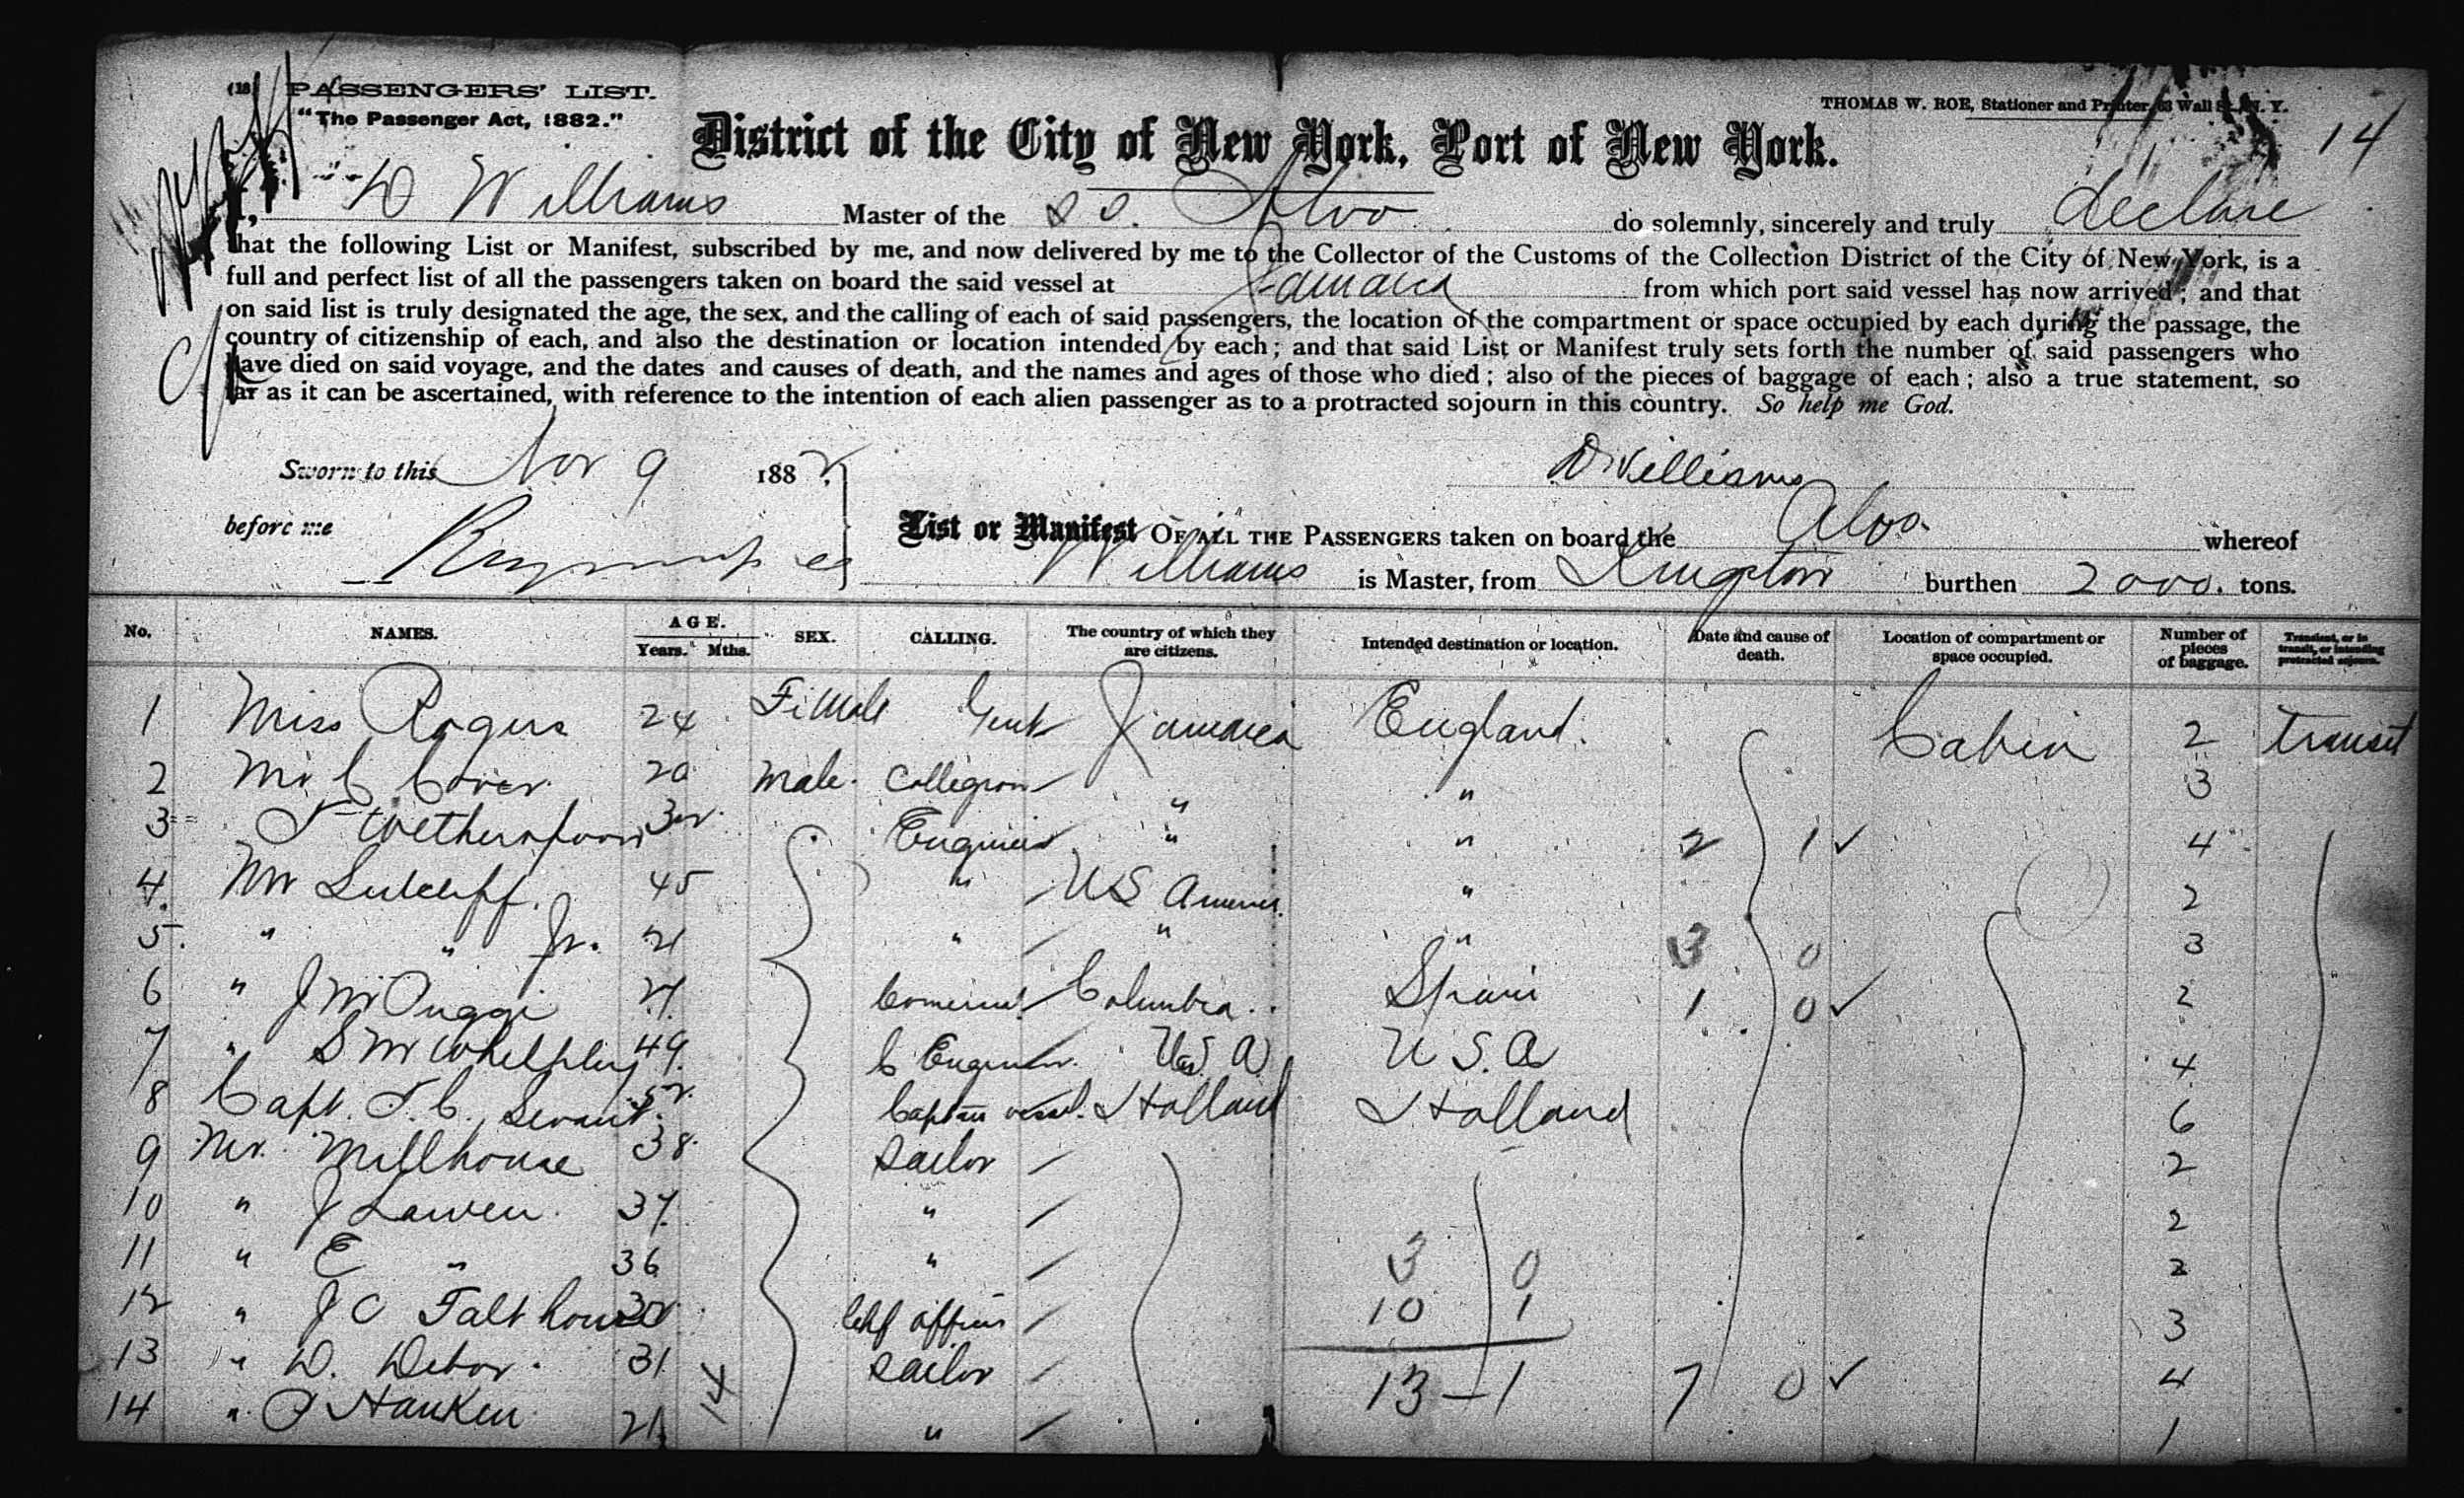 (18) PASSENGERS' LIST.
"The Passenger Act, 1882."
THOMAS W. ROE, Stationer and Printer, 63 Wall St., N. Y.
14
District of the City of New York, Port of New York.
I, D Williams Master of the SS. Alvo do solemnly, sincerely and truly declare
that the following List or Manifest, subscribed by me, and now delivered by me to the Collector of the Customs of the Collection District of the City of New York, is a
full and perfect list of all the passengers taken on board the said vessel at Jamaica from which port said vessel has now arrived; and that
on said list is truly designated the age, the sex, and the calling of each of said passengers, the location of the compartment or space occupied by each during the passage, the
country of citizenship of each, and also the destination or location intended by each; and that said List or Manifest truly sets forth the number of said passengers who
have died on said voyage, and the dates and causes of death, and the names and ages of those who died; also of the pieces of baggage of each; also a true statement, so
far as it can be ascertained, with reference to the intention of each alien passenger as to a protracted sojourn in this country. So help me God.
Sworn to this Nov 9 1882
D Williams
before me
List or Manifest OF ALL THE PASSENGERS taken on board the Alvo. whereof
Williams is Master, from Kingston burthen 2000. tons.
No. NAMES. AGE. Years. Mths. SEX. CALLING. The country of which they are citizens. Intended destination or location. Date and cause of death. Location of compartment or space occupied. Number of pieces of baggage. Transient, or in transit, or intending protracted sojourn.
1 Miss Rogers 24 Female Jamaica England. Cabin 2 transit
2 Mr C Cover 20 Male. Collegion " " 3
3 T Wetherspoon 32 Engineer " " 2 1 ✓ 4
4. Mr Sutcliff. 45 " U S America " 2
5. " " Jr. 21 " " " 3 0 3
6 " 27. Columbia Spain 1 0 ✓ 2
7 " S M Whelpley 49. C Engineer. U.S.A U S.A 4
8 Capt. T. C. Servant. 52. Captain vessel. Holland Holland 6
9 Mr. Millhouse 38. Sailor 2
10 " J Lawen 37. " 2
11 " E " 36 " 3 0 2
12 " J C 10 1 3
13 " D. 31 Sailor 13 – 1 7 0 ✓ 4
14 " Hanken 21. 14 " 1